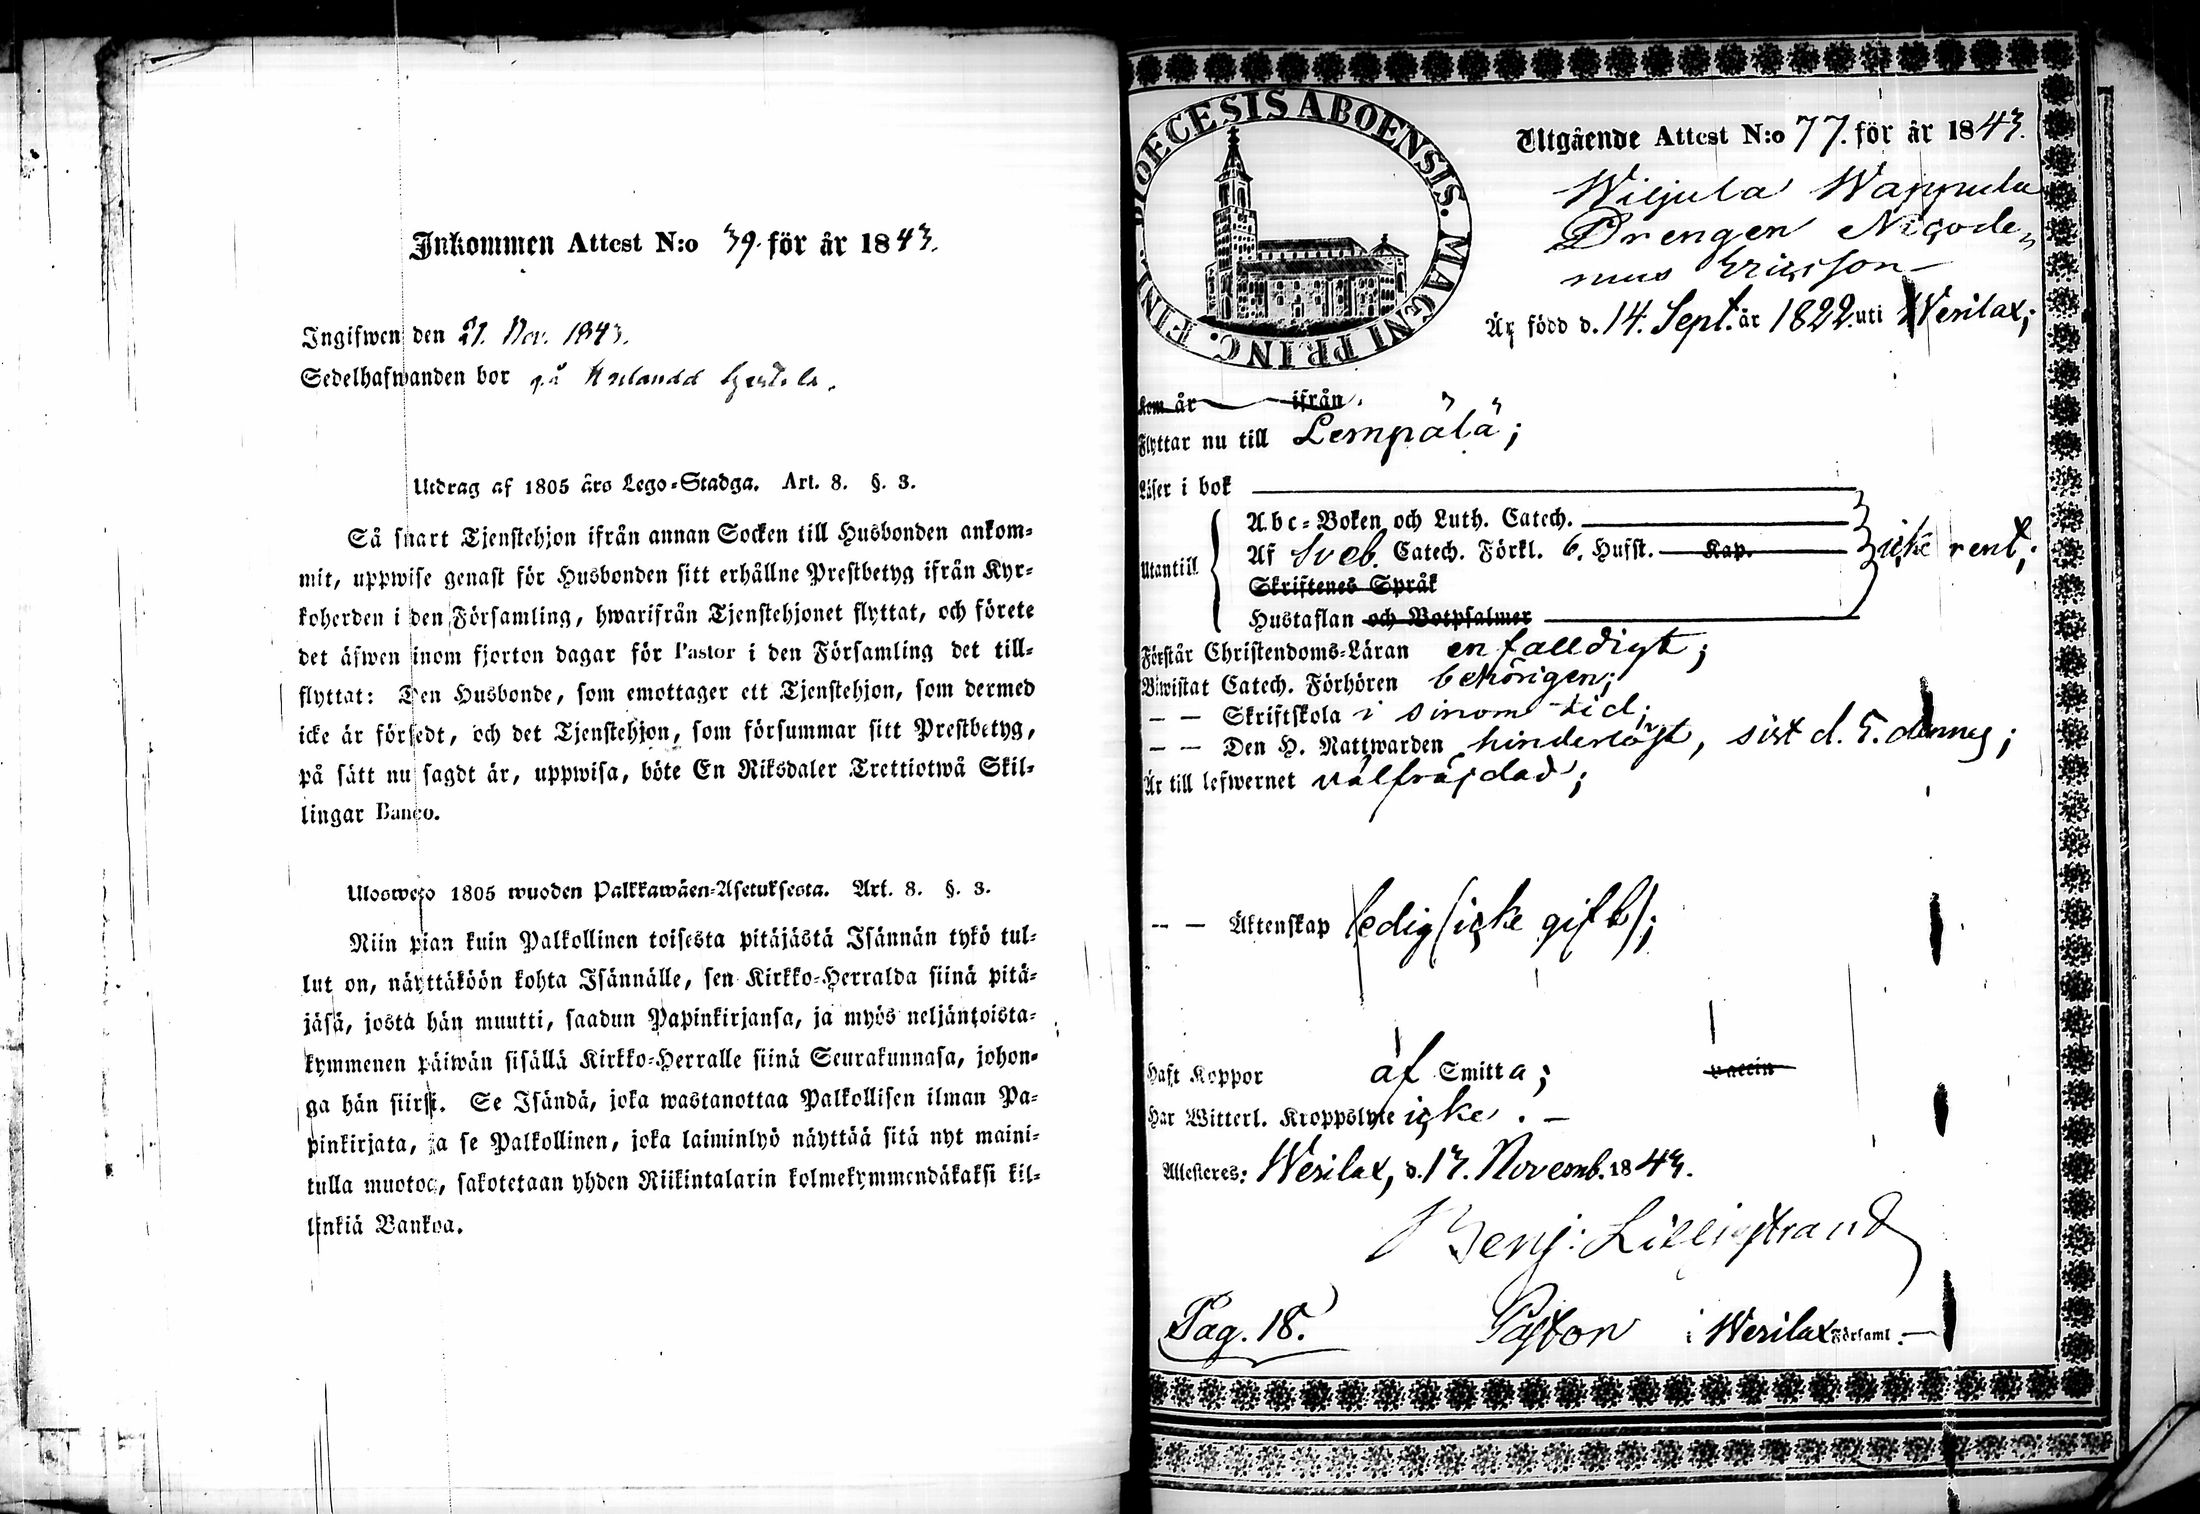 Inkommen Attest N:o 39. för år 1843.
Ingifwen den 21. Nov. 1843.
Sedelhafwanden bor på
Utdrag af 1805 års Lego-Stadga. Art. 8. §. 3.
Så snart Tjenstehjon ifrån annan Socken till Husbonden ankom-
mit, uppwise genast för Husbonden sitt erhållne Prestbetyg ifrån Kyr-
koherden i den Församling, hwarifrån Tjenstehjonet flyttat, och förete
det äfwen inom fjorton dagar för Pastor i den Församling det till-
flyttat: Den Husbonde, som emottager ett Tjenstehjon, som dermed
icke är försedt, och det Tjenstehjon, som försummar sitt Prestbetyg,
på sätt nu sagdt är, uppwisa, böte En Riksdaler Trettiotwå Skil-
lingar Banco.
Ulosweto 1805 wuoden Palkkawäen-Asetuksesta. Art. 8. §. 3.
Niin pian kuin Palkollinen toisesta pitäjästä Isännän tykö tul-
lut on, näyttäköön kohta Isännälle, sen Kirkko-Herralda siinä pitä-
jäsä, josta hän muutti, saadun Papinkirjansa, ja myös neljäntoista-
kymmenen päiwän sisällä Kirkko-Herralle siinä Seurakunnasa, johon-
ga hän siirsi. Se Isändä, joka wastanottaa Palkollisen ilman Pa-
pinkirjata, ja se Palkollinen, joka laiminlyö näyttää sitä nyt maini-
tulla muotoa, sakotetaan yhden Riikintalarin kolmekymmendäkaksi kil-
linkiä Bankoa.
DIOECESIS ABOENSIS. MAGNI PRINC. FINL.
Utgående Attest N:o 77. för år 1843.
Wiljula Wappula
Drengen Nicode-
mus Ericsson
Är född d. 14. Sept. år 1822. uti Wesilax;
Kom år ifrån
Flyttar nu till Lempälä;
Läser i bok
Utantill
Abc-Boken och Luth. Catech.
Af Sveb. Catech. Förkl. 6. Hufst. Kap. icke rent;
Skriftenes Språk
Hustaflan och Botpsalmer
Förstår Christendoms-Läran enfalldigt;
Biwistat Catech. Förhören behörigen;
— — Skriftskola i sinom tid;
— — Den H. Nattwarden hinderlöst, sist d. 5. dennes;
Är till lefwernet välfräjdad;
— — Äktenskap ledig (icke gift);
Haft Koppor af Smitta; vaccin
Har Witterl. Kroppslyte icke. —
Attesteres: Wesilax, d. 13. Novemb. 1843.
Benj: Lilljestrand
Pag. 18. Pastor i Wesilax Församl.